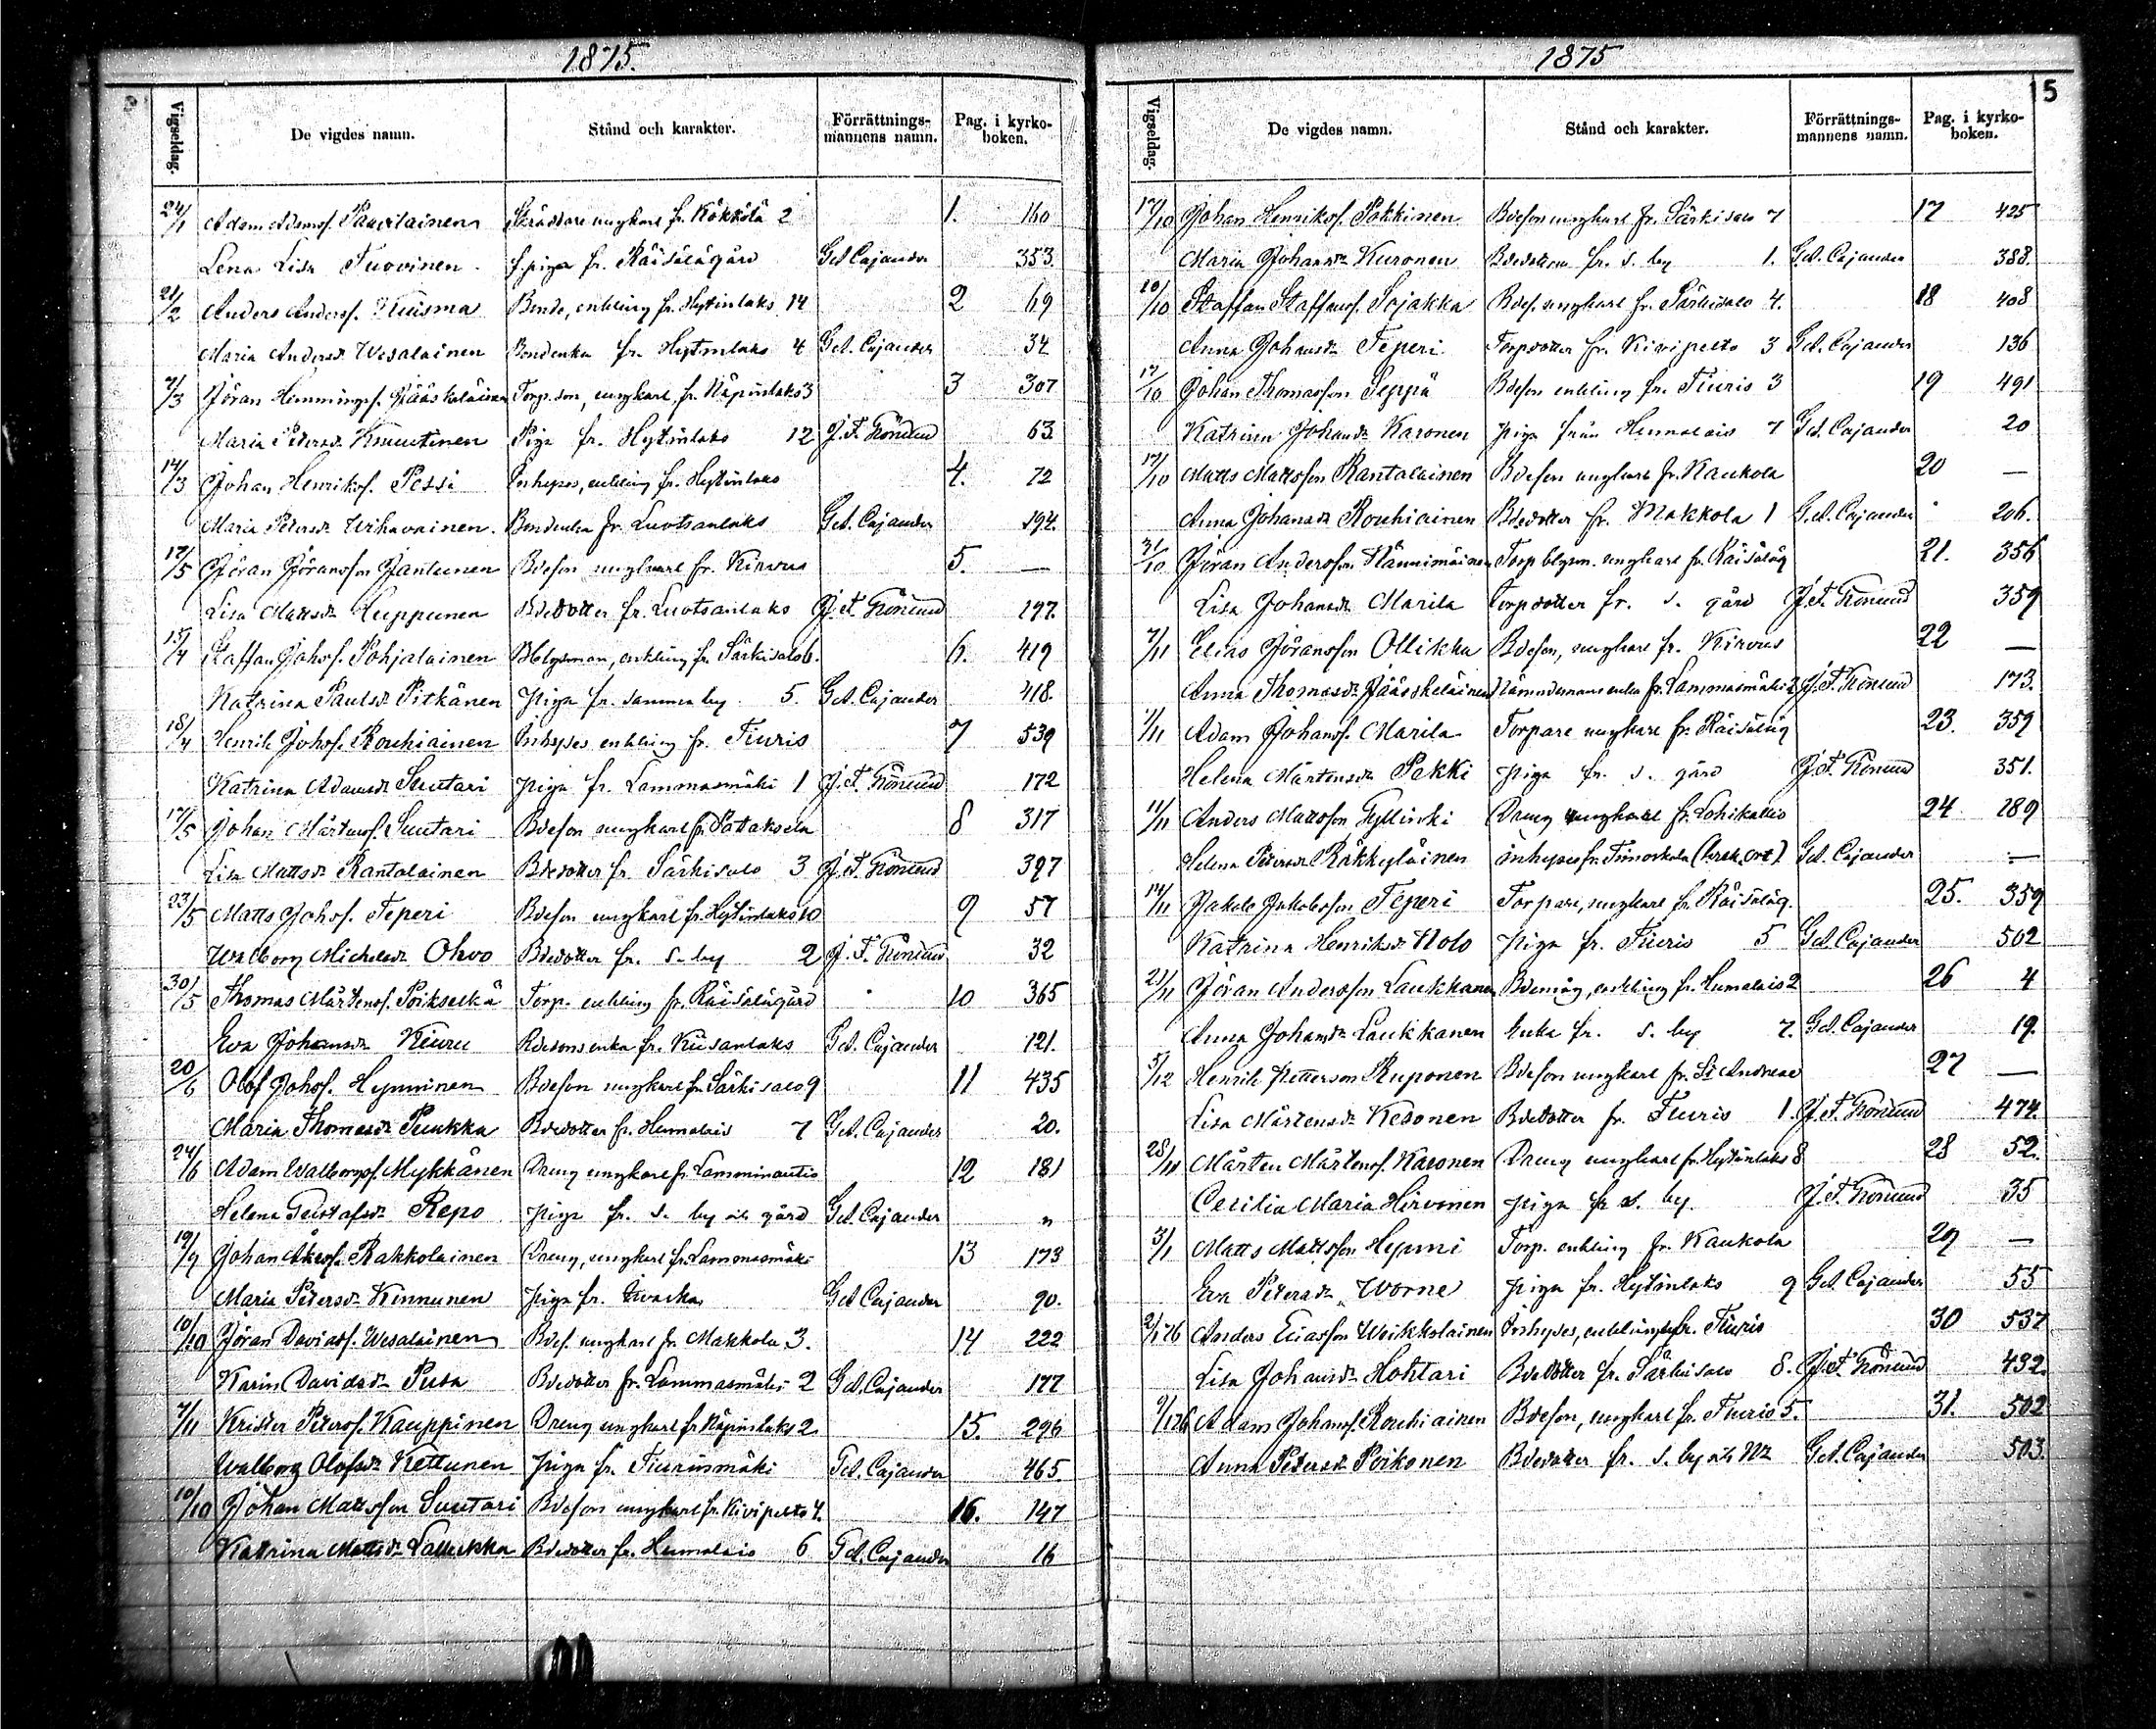 1875.
Vigseldag. De vigdes namn. Stånd och karakter. Förrättnings-mannens namn. Pag. i kyrko-boken.
24/1 Adam Adamsf. Paavilainen Skräddare ungkarl fr. Kökkölä 2 1. 160
Lena Lisa Tuovinen. f. piga fr. Räisälägård Gd. Cajander 353.
21/2 Anders Andersf. Kuisma Bonde, enkling fr. Hytinlaks 14 2 69
Maria Andersdr Wesalainen Bondenka fr. Hytinlaks 4 Gd. Cajander 34
7/3 Jöran Hemmingsf. Jääskeläinen Torp. son, ungkarl, fr. Näpinlaks 3 3 307
Maria Petersdr Knuutinen Piga fr. Hytinlaks 12 J. F. Grönlund 63
14/3 Johan Henriksf. Pessi Inhyses, enkling fr. Hytinlaks 4. 72
Maria Petersdr Urhavainen. Bondenka fr. Luotsanlaks Gd. Cajander 194.
17/5 Jöran Jöransson Jantunen Bdeson ungkarl fr. Kirvus 5. —
Lisa Mattsdr Huppunen Bdedotter fr. Luotsanlaks J. F. Grönlund 197.
15/4 Staffan Johsf. Pohjalainen Bbolgsman, enkling fr. Särkisalo 6. 6. 419
Katrina Paulsdr Pitkänen piga fr. samma by 5. Gd. Cajander 418.
18/4 Henrik Johsf. Rouhiainen Inhyses enkling fr. Tiuris 7 539
Katrina Adamsdr Suutari piga fr. Lammasmäki 1 J. F. Grönlund 172
17/5 Johan Mårtensf. Suutari Bdeson ungkarl fr. Sattaksela 8 317
Lisa Mattsdr Rantalainen Bdedotter fr. Särkisalo 3 J. F. Grönlund 397
23/5 Matts Johsf. Teperi Bdeson ungkarl fr. Hytinlaks 10 9 57
Walborg Michelsdr Ohvo Bdedotter fr. s. by 2 J. F. Grönlund 32
30/5 Thomas Mårtensf. Poikselkä Torp. enkling fr. Räisälägård 10 365
Eva Johansdr Kiuru Bdesons enka fr. Kiisanlaks Gd. Cajander 121.
20/6 Olof Johsf. Hynninen Bdeson ungkarl fr. Särkisalo 9 11 435
Maria Thomasdr Puukka Bdedotter fr. Humalais 7 Gd. Cajander 20.
24/6 Adam Walborgsf. Mykkänen Dreng ungkarl fr. Lamminautio 12 181
Helena Gustafsdr Repo piga fr. s. by och gård Gd. Cajander "
19/9 Johan Åkesf. Rakkolainen Dreng, ungkarl fr. Lammasmäki 13 173
Maria Petersdr Kinnunen piga fr. Gd. Cajander 90.
10/10 Jöran Davidsf. Wesalainen Bdes. ungkarl fr. Makkola 3. 14 222
Karin Davidsdr Pusa Bdedotter fr. Lammasmäki 2 Gd. Cajander 177
7/11 Krister Petersf. Kauppinen Dreng ungkarl fr. Näpinlaks 2 15. 296
Walborg Olofsdr Kettunen piga fr. Tiurinmäki Gd. Cajander 465
10/10 Johan Mattsson Suutari Bdeson ungkarl fr. Kivipelto 4. 16. 147
Katrina Mattsdr Laukka Bdedotter fr. Humalais 6 Gd. Cajander 16
1875
15
Vigseldag. De vigdes namn. Stånd och karakter. Förrättnings-mannens namn. Pag. i kyrko-boken.
17/10 Johan Henriksf. Pokkinen Bdeson ungkarl fr. Särkisalo 7 17 425
Maria Johansdr Kuronen Bdedotter fr. s. by 1. Gd. Cajander 388.
10/10 Staffan Staffansf. Sojakka Bdes. ungkarl fr. Särkisalo 4. 18 408
Anna Johansdr Teperi Torpdotter fr. Kivipelto 3 Gd. Cajander 136
17/10 Johan Thomasson Seppä Bdeson enkling fr. Tiuris 3 19 491
Katrina Johansdr Karonen piga från Humalais 7 Gd. Cajander 20
17/10 Matts Mattsson Rantalainen Bdeson ungkarl fr. Kaukola 20 —
Anna Johansdr Rouhiainen Bdedotter fr. Makkola 1 Gd. Cajander 206.
31/10 Jöran Andersson Hännimäinen Torp. blgsm. ungkarl fr. Räisäläg 21. 356
Lisa Johansdr Marila torpdotter fr. s. gård J. F. Grönlund 359
7/11 Elias Jöransson Ollikka Bdeson, ungkarl fr. Kirvus 22 —
Anna Thomasdr Jääskeläinen Nämndemans enka fr. Lammasmäki 2 J. F. Grönlund 173.
1/11 Adam Johansf. Marila Torpare ungkarl fr. Räisäläg 23. 359
Helena Mårtensdr Pekki piga fr. s. gård J. F. Grönlund 351.
11/11 Anders Mattsson Tyllinki Dreng ungkarl fr. Lohikallio 24 289
Helena Petersdr Räkkyläinen inhyses fr. Gd. Cajander —
14/11 Jakob Jakobsson Teperi Torpare, ungkarl fr. Räisäläg. 25. 359
Katrina Henriksdr Holo piga fr. Tiuris 5 Gd. Cajander 502
21/11 Jöran Andersson Laukkanen Bdemåg, enkling fr. Humalais 2 26 4
Anna Johansdr Laukkanen Enka fr. s. by 7. Gd. Cajander 19.
5/12 Henrik Petterson Ruponen Bdeson ungkarl fr. St Andreae 27 —
Lisa Mårtensdr Kesonen Bdedotter fr. Tiuris 1. J. F. Grönlund 474.
28/11 Mårten Mårtensf. Karonen Dreng ungkarl fr. Hytinlaks 8 28 52.
Cecilia Maria Hirvonen piga fr s. by. J. F. Grönlund 35
3/1 Matts Mattsson Hymni Torp. enkling fr. Kaukola 29 —
Eva Petersdr Worne piga fr. Hytinlaks 9 Gd. Cajander 55
2/1 76 Anders Eliasson Woikkolainen Inhyses, enkling fr. Tiuris 30 537
Lisa Johansdr Hohtari Bdedotter fr. Särkisalo 8. J. F. Grönlund 432.
9/1 76 Adam Johansf. Rouhiainen Bdeson, ungkarl fr. Tiuris 5. 31. 502
Anna Petersdr Poikonen Bdedotter fr. s. by och No Gd. Cajander 503.